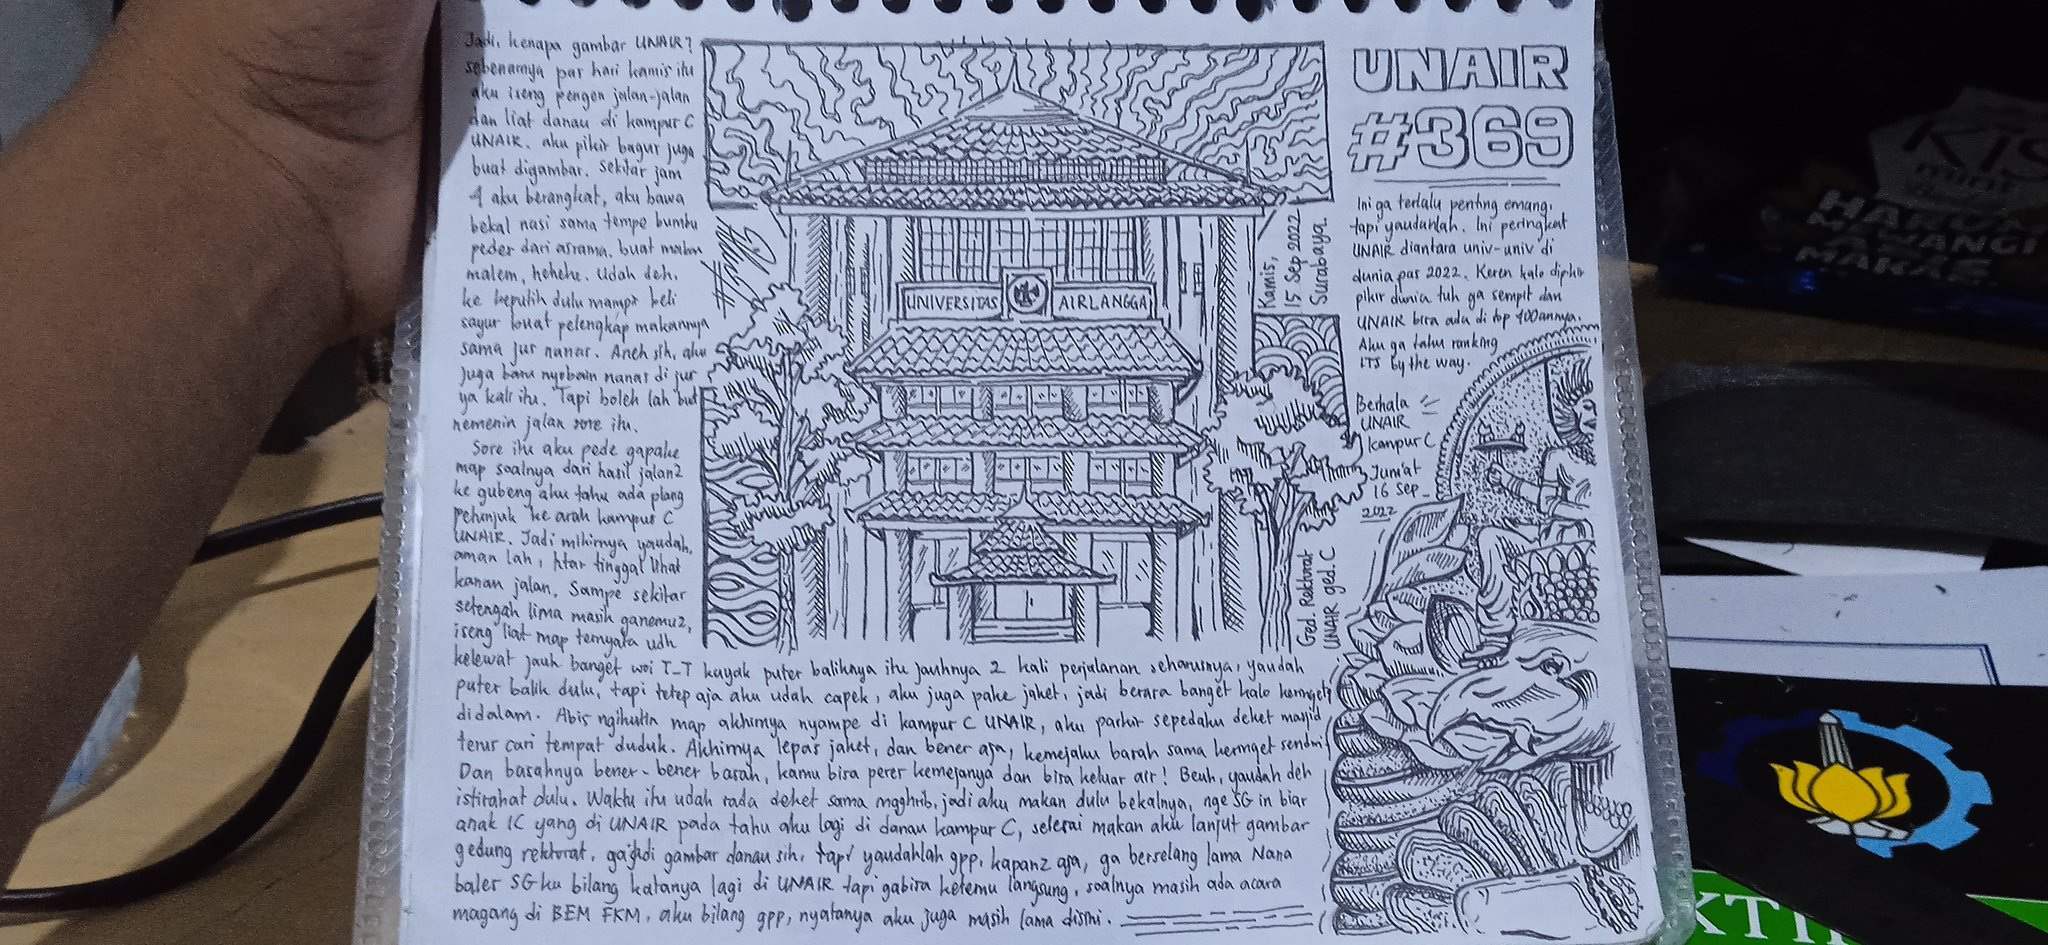 Jadi, kenapa gambar UNAIR?
sebenarnya pas hari kamis itu
aku iseng pengen jalan-jalan
dan liat danau di kampus C
UNAIR. aku pikir bagus juga
buat digambar. Sekitar jam
4 aku berangkat, aku bawa
bekal nasi sama tempe bumbu
peder dari asrama. buat makan
malem, hehehe. Udah deh.
ke keputih dulu mampir beli
sayur buat pelengkap makannya
sama jus nanas. Aneh sih, aku
juga baru nyobain nanas di jus
ya kali itu. Tapi boleh lah but
nemenin jalan sore itu.
Sore itu aku pede gapake
map soalnya dari hasil jalan2
ke gubeng aku tahu ada plang
petunjuk ke arah kampus C
UNAIR. Jadi mikirnya yaudah,
aman lah, ntar tinggal lihat
kanan jalan. Sampe sekitar
setengah lima masih ganemu2,
iseng liat map ternyata udh
kelewat jauh banget woi T_T kayak puter baliknya itu jauhnya 2 kali perjalanan seharusnya, yaudah
puter balik dulu, tapi tetep aja aku udah capek, aku juga pake jaket, jadi berasa banget kalo keringety
didalam. Abis ngikutin map akhirnya nyampe di kampus C UNAIR, aku parkir sepedaku deket masjid
terus cari tempat duduk. Akhirnya lepas jaket, dan bener aja, kemejaku basah sama keringet sendiri
Dan basahnya bener-bener basah, kamu bisa peres kemejanya dan bisa keluar air! Beuh, yaudah deh
istirahat dulu. Waktu itu udah rada deket sama maghrib, jadi aku makan dulu bekalnya, nge SG in biar
anak IC yang di UNAIR pada tahu aku lagi di danau kampus C, selesai makan aku lanjut gambar
gedung rektorat. ga jadi gambar danau sih, tapi yaudahlah gpp. kapan2 aja, ga berselang lama Nana
bales SGku bilang katanya lagi di UNAIR tapi gabisa ketemu langsung, soalnya masih ada acara
magang di BEM FKM. aku bilang gpp, nyatanya aku juga masih lama disini.
UNIVERSITAS AIRLANGGA
Kamis,
15 Sep 2022
Surabaya.
Ged. Rektorat
UNAIR ged. C
UNAIR
#369
Ini ga terlalu penting emang.
tapi yaudahlah. Ini peringkat
UNAIR diantara univ-univ di
dunia pas 2022. Keren kalo dipikir
pikir dunia tuh ga sempit dan
UNAIR bisa ada di top 400annya.
Aku ga tahu ranking
ITS by the way.
Berhala
UNAIR
kampus C
Jum'at
16 Sep
2022
HARUM
MEWANGI